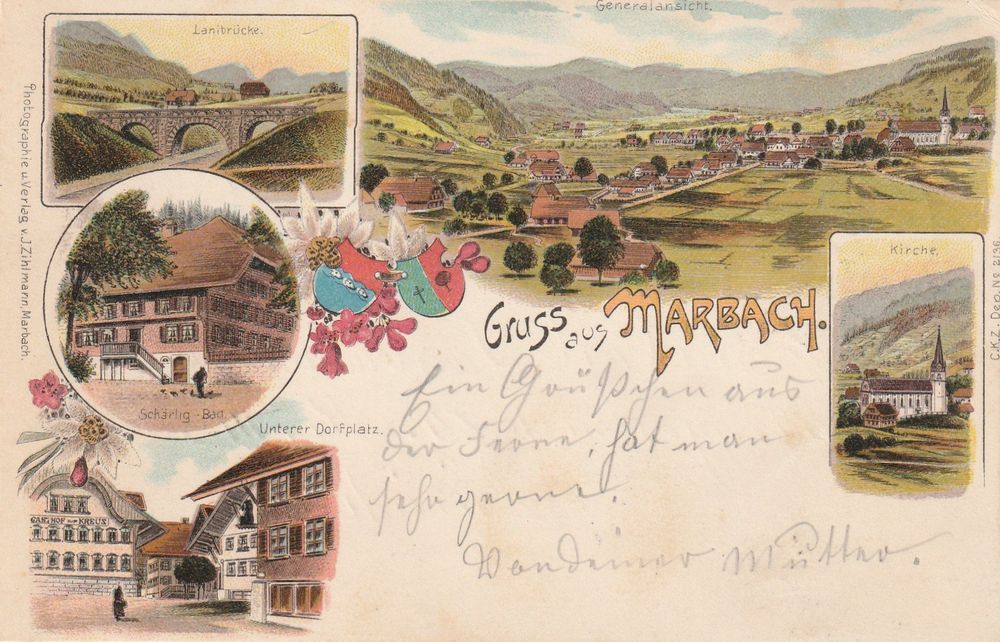 Generalansicht.
Lanibrücke.
Photographie u. Verlag v. J. Zihlmann, Marbach.
Kirche.
Gruss aus MARBACH.
C.K.Z. Dep. No. 2196.
Schärlig-Bad.
Unterer Dorfplatz.
GASTHOF ZUM KREUZ
Ein Grüßchen aus
der Ferne, hat man
sehr gerne.
Von deiner Mutter.